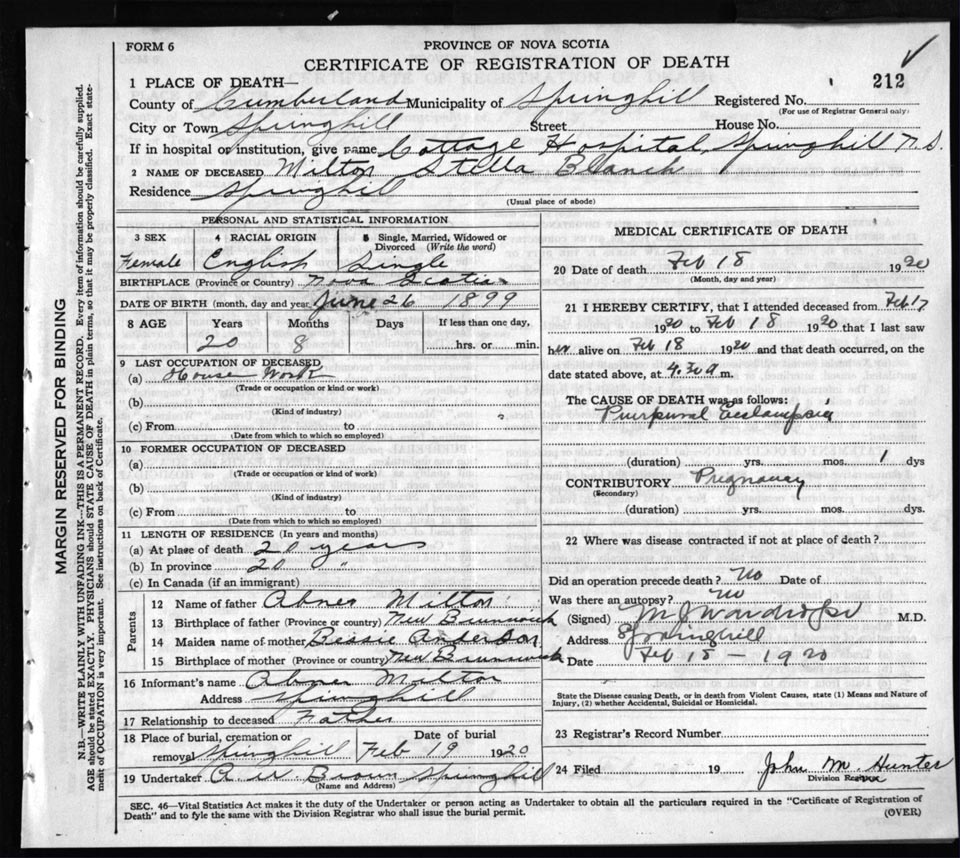 FORM 6
PROVINCE OF NOVA SCOTIA
CERTIFICATE OF REGISTRATION OF DEATH
212
1 PLACE OF DEATH—
County of Cumberland Municipality of Springhill Registered No.
(For use of Registrar General only)
City or Town Springhill Street House No.
If in hospital or institution, give name Cottage Hospital, Springhill N.S.
2 NAME OF DECEASED Milton Stella Blanch
Residence Springhill
(Usual place of abode)
PERSONAL AND STATISTICAL INFORMATION
3 SEX 4 RACIAL ORIGIN 5 Single, Married, Widowed or Divorced (Write the word)
Female English Single
BIRTHPLACE (Province or Country) Nova Scotia
DATE OF BIRTH (month, day and year) June 26 1899
8 AGE Years Months Days If less than one day,
20 8 hrs. or min.
9 LAST OCCUPATION OF DECEASED
(a) House Work
(Trade or occupation or kind or work)
(b)
(Kind of industry)
(c) From to
(Date from which to which so employed)
10 FORMER OCCUPATION OF DECEASED
(a)
(Trade or occupation or kind of work)
(b)
(Kind of industry)
(c) From to
(Date from which to which so employed)
11 LENGTH OF RESIDENCE (In years and months)
(a) At place of death 20 years
(b) In province 20 "
(c) In Canada (if an immigrant)
Parents
12 Name of father Abner Milton
13 Birthplace of father (Province or country) New Brunswick
14 Maiden name of mother Bessie Anderson
15 Birthplace of mother (Province or country) New Brunswick
16 Informant's name Abner Milton
Address Springhill
17 Relationship to deceased Father
18 Place of burial, cremation or Date of burial
removal Springhill Feb 19 1920
19 Undertaker A W Brown Springhill
(Name and Address)
MEDICAL CERTIFICATE OF DEATH
20 Date of death Feb 18 1920
(Month, day and year)
21 I HEREBY CERTIFY, that I attended deceased from Feb 17
1920 to Feb 18 1920 that I last saw
her alive on Feb 18 1920 and that death occurred, on the
date stated above, at 4.30 a m.
The CAUSE OF DEATH was as follows:
Puurpural Eclampsia
(duration) yrs. mos. 1 dys
CONTRIBUTORY Pregnancy
(Secondary)
(duration) yrs. mos. dys.
22 Where was disease contracted if not at place of death?
Did an operation precede death? No Date of
Was there an autopsy? No
(Signed) M J Wardrope M.D.
Address Springhill
Date Feb 18 - 1920
State the Disease causing Death, or in death from Violent Causes, state (1) Means and Nature of
Injury, (2) whether Accidental, Suicidal or Homicidal.
23 Registrar's Record Number
24 Filed 19 John M Hunter
Division Registrar
SEC. 46—Vital Statistics Act makes it the duty of the Undertaker or person acting as Undertaker to obtain all the particulars required in the "Certificate of Registration of
Death" and to fyle the same with the Division Registrar who shall issue the burial permit.
(OVER)
MARGIN RESERVED FOR BINDING
N.B.—WRITE PLAINLY WITH UNFADING INK—THIS IS A PERMANENT RECORD. Every item of information should be carefully supplied.
AGE should be stated EXACTLY. PHYSICIANS should STATE CAUSE OF DEATH in plain terms, so that it may be properly classified. Exact state-
ment of OCCUPATION is very important. See instructions on back of Certificate.